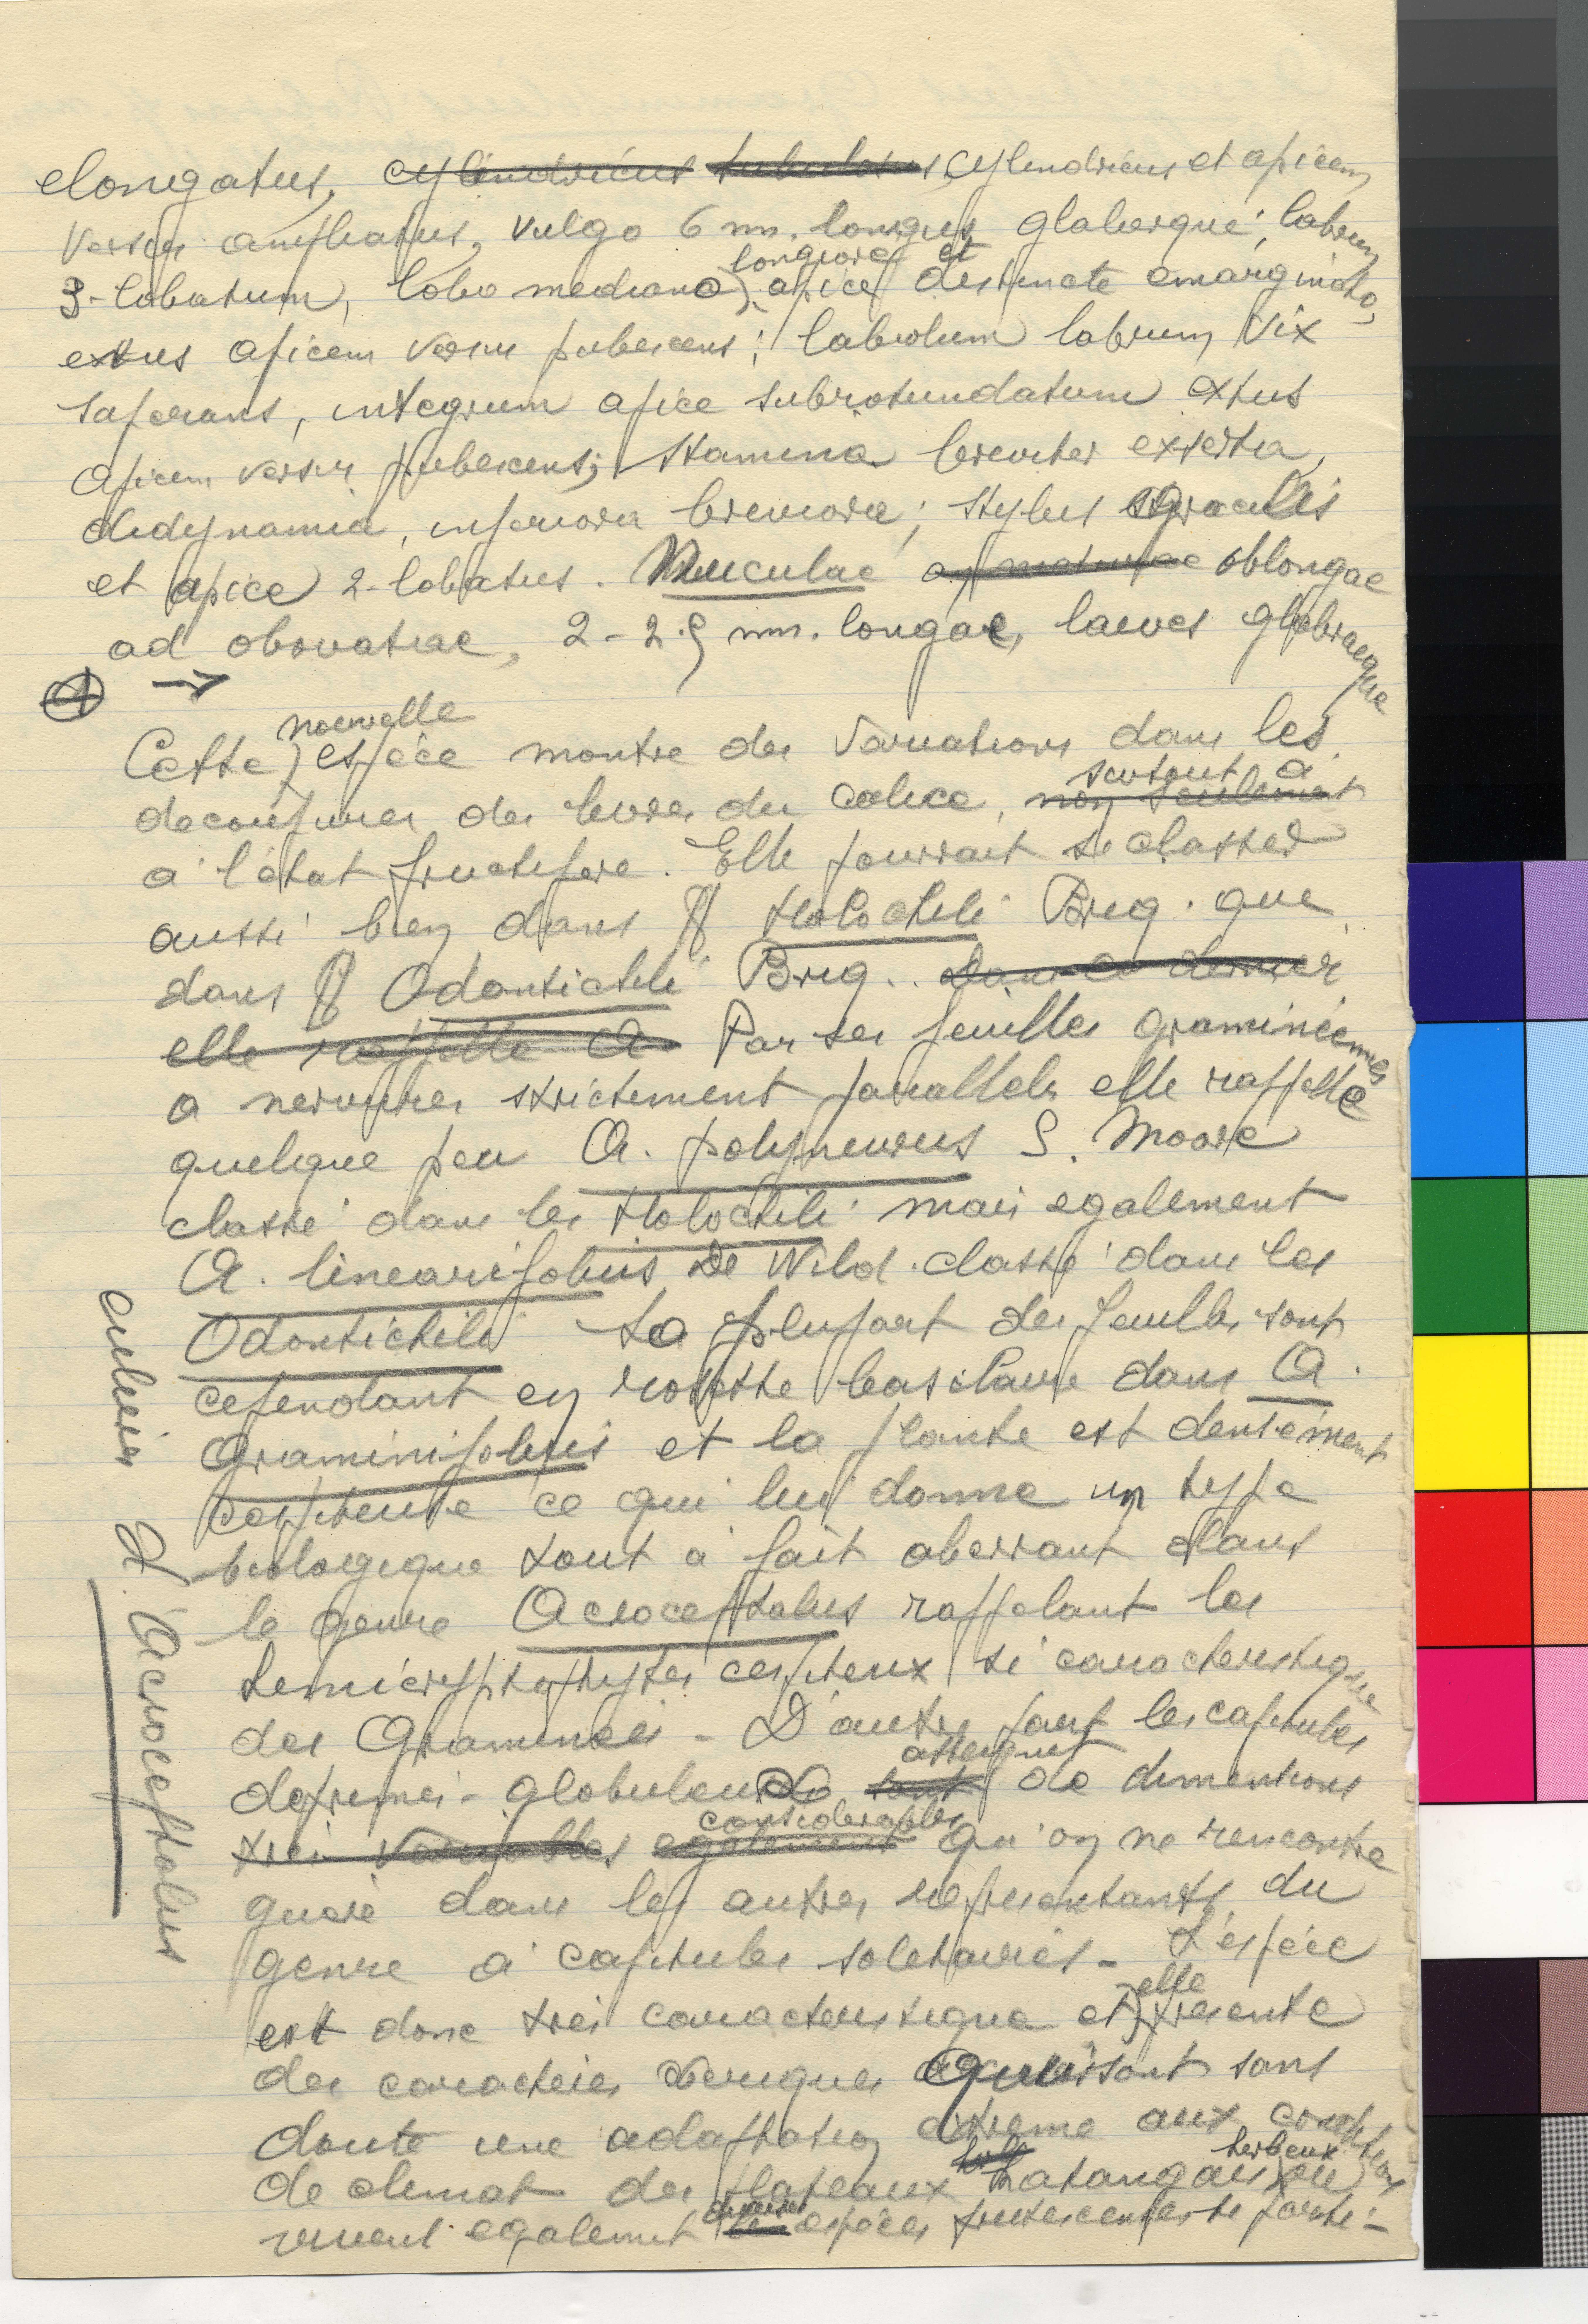 elongatus, cylindricus tubulosus, cylindricus et apicem
versus ampliatus, vulgo 6 mm. longus glaberque; labrum
3-lobatum, lobo mediano longiore et apice destincte emarginato,
extus apicem versus pubescens; labiolum labrum vix
superans, integrum apice subrotundatum extus
apicem versus pubescens; stamina breviter exserta,
didynamia, inferiora breviora; stylus gracilis
et apice 2-lobatus. Nuculae oblongae
ad obovatae, 2-2.5 mm. longae, laeves glabraeque
→
Cette nouvelle espèce montre des variations dans les
decoupures des levres du calice, non seulement surtout à
a l'état fructifere. Elle pourrait se classer
aussi bien dans § Holochili Briq. que
dans § Odontichili Briq.. Dans ce dernier
elle rappelle A. Par ses feuilles graminéennes
a nervures strictement paralleles elle rappelle
quelque peu A. polyneurus S. Moore
classé dans les Holochili mais egalement
A. linearifolius De Wild. classé dans les
Odontichili La plupart des feuilles sont
cependant en rosette basilaire dans A.
graminifolius et la plante est densément
cespiteuse ce qui lui donne un type
biologique tout à fait aberrant dans
le genre Acrocephalus rappelant les
hemicryptophytes cespiteux si caracteristique
des Graminées - D'autre part les capitules
deprimés-globuleux sont atteignent de dimensions
très variables egalement considerables qu'on ne rencontre
guere dans les autres représentants du
genre à capitules solitaires - L'espèce
est donc très caracteristique et elle presente
des caracteres sans
doute une adaptation extreme aux conditions
de climat des plateaux katangais herbeux ou
vivent egalement diverses espèces frutescentes te parti-
Acrocephalus